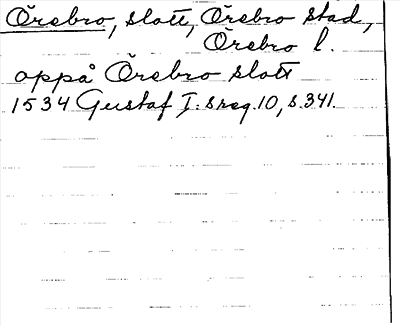 Örebro, slott, Örebro stad,
Örebro l.
oppå Örebro slott
1534 Gustaf I:s reg. 10, s. 341.